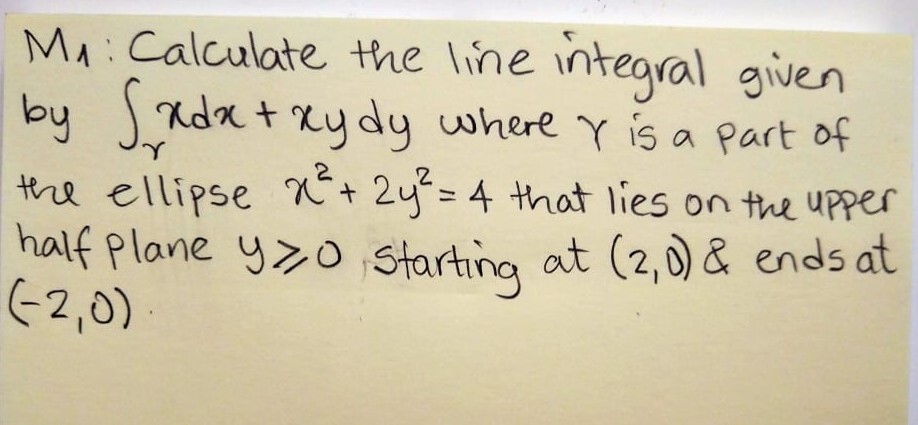 M1: Calculate the line integral given
by ∫γ xdx + xy dy where γ is a part of
the ellipse x² + 2y² = 4 that lies on the upper
half plane y ⩾ 0 starting at (2,0) & ends at
(-2,0).